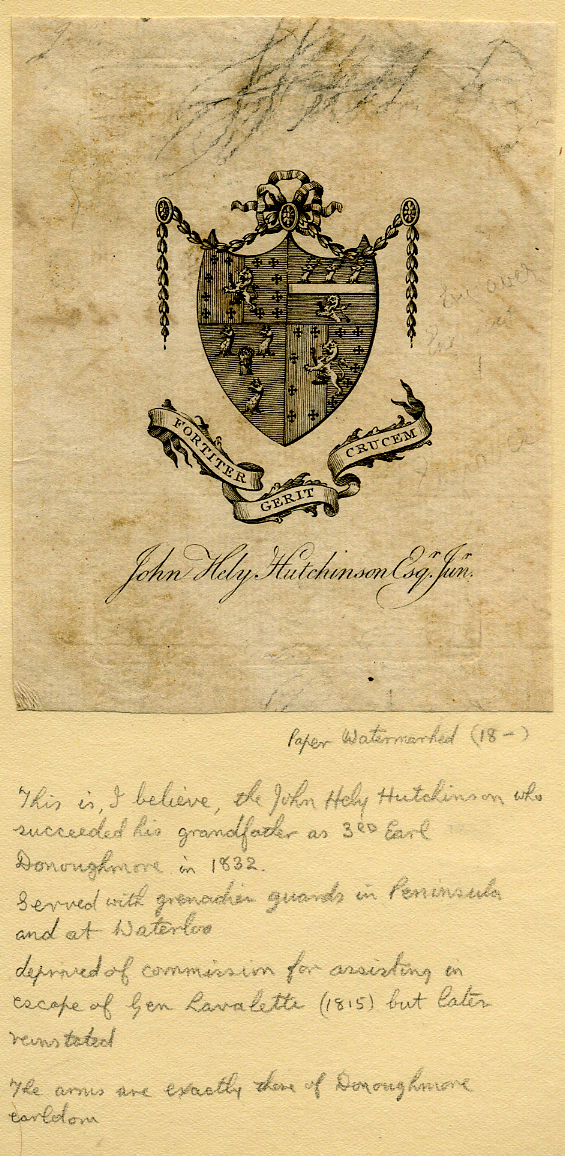 FORTITER
GERIT
CRUCEM
John Hely Hutchinson Esqr. Junr.
Engraver
Paper Watermarked (18-)
This is, I believe, the John Hely Hutchinson who
succeeded his grandfather as 3rd Earl
Donoughmore in 1832.
Served with grenadier guards in Peninsula
and at Waterloo
deprived of commission for assisting in
escape of Gen Lavalette (1815) but later
reinstated
The arms are exactly those of Donoughmore
earldom